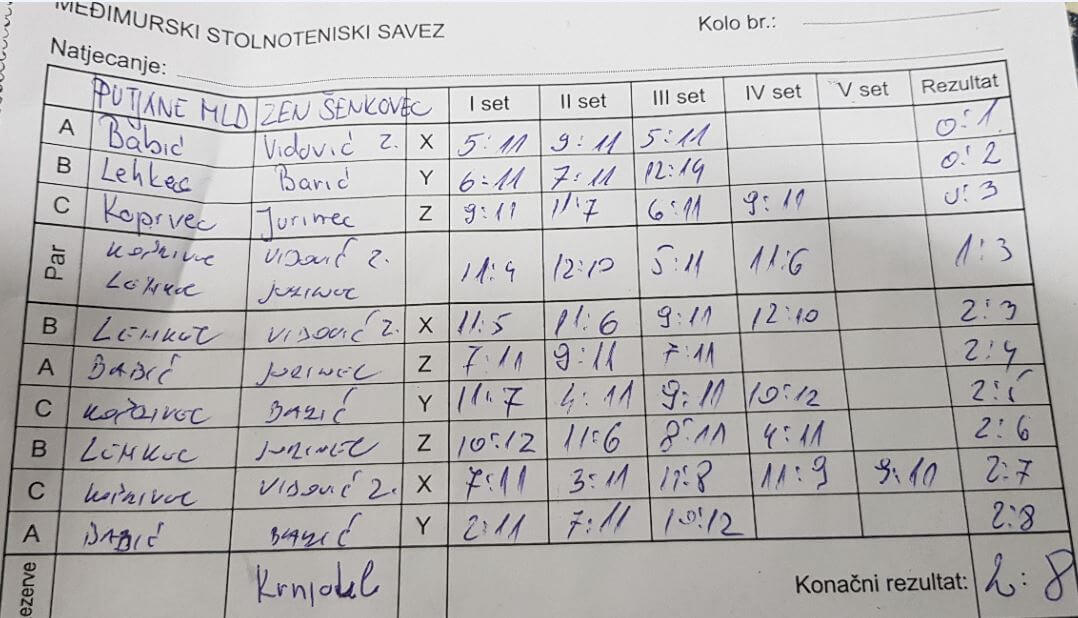 MEĐIMURSKI STOLNOTENISKI SAVEZ
Kolo br.:
Natjecanje:
PUTJANE MLD ZEN ŠENKOVEC I set II set III set IV set V set Rezultat
A Babić Vidović Z. X 5:11 9:11 5:11 0:1
B Lehkec Barić Y 6:11 7:11 12:14 0:2
C Koprvec Jurinec Z 9:11 11:7 6:11 9:11 0:3
Par VIDOVIĆ Z. 11:9 12:10 5:11 11:6 1:3
JURINEC
B LEHKEC VIDOVIĆ Z. X 11:5 11:6 9:11 12:10 2:3
A BABIĆ JURINEC Z 7:11 9:11 7:11 2:4
C BARIĆ Y 11:7 4:11 9:11 10:12 2:5
B LEHKEC JURINEC Z 10:12 11:6 8:11 4:11 2:6
C VIDOVIĆ Z. X 7:11 3:11 11:8 11:9 9:11 2:7
A BABIĆ BARIĆ Y 2:11 7:11 10:12 2:8
ezerve Konačni rezultat: 2:8